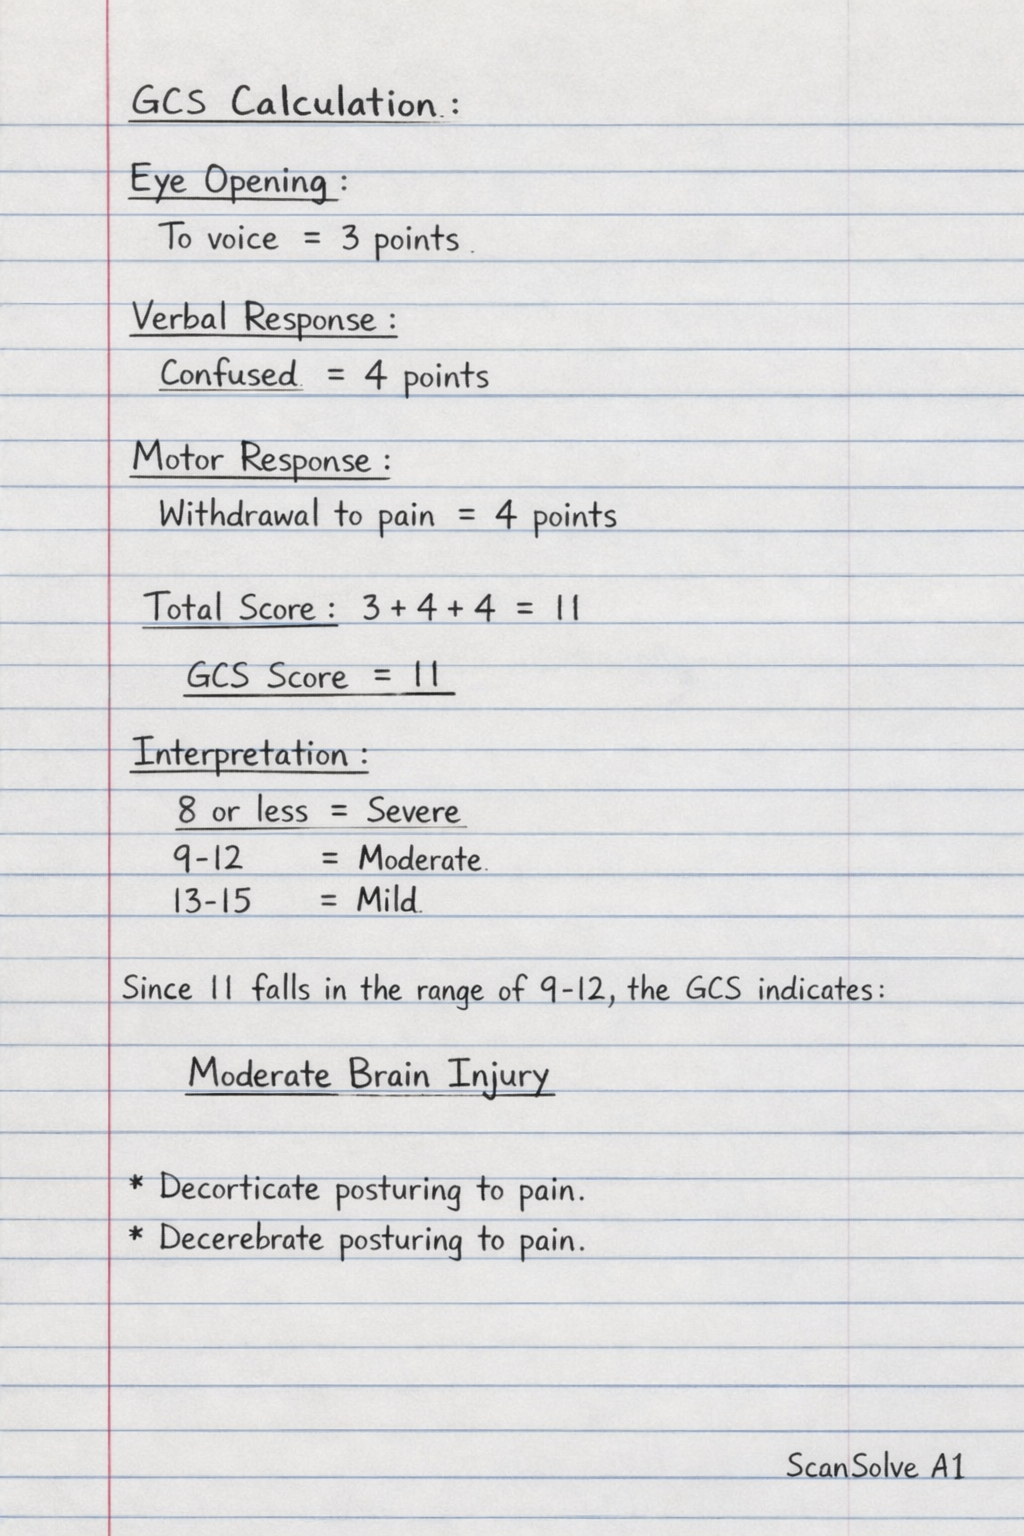 GCS Calculation:
Eye Opening:
To voice = 3 points.
Verbal Response:
Confused. = 4 points
Motor Response:
Withdrawal to pain = 4 points
Total Score: 3 + 4 + 4 = 11
GCS Score = 11
Interpretation:
8 or less = Severe
9-12 = Moderate.
13-15 = Mild.
Since 11 falls in the range of 9-12, the GCS indicates:
Moderate Brain Injury
* Decorticate posturing to pain.
* Decerebrate posturing to pain.
ScanSolve A1